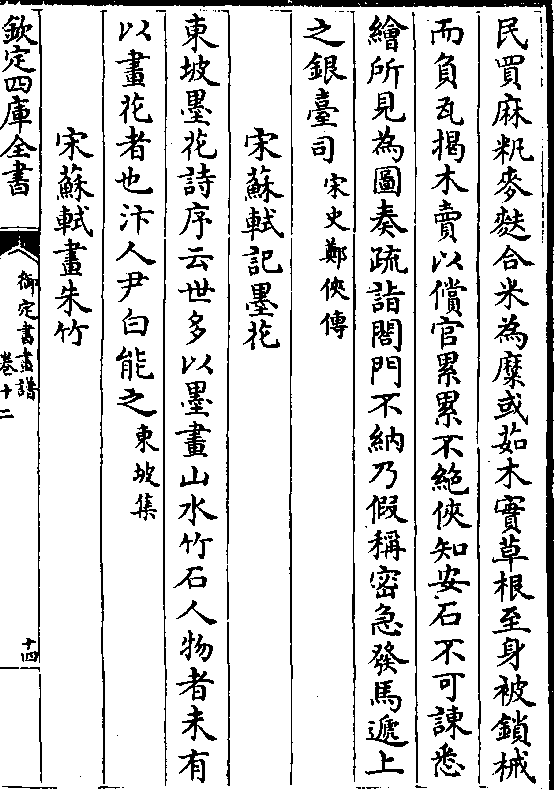 民買麻籸麥麩合米為糜或茹木實草根至身被鎖械
而負瓦揭木賣以償官累累不絕俠知安石不可諫悉
繪所見為圖奏疏詣閤門不納乃假稱密急發馬遞上
之銀臺司宋史鄭俠傳
宋蘇軾記墨花
東坡墨花詩序云世多以墨畫山水竹石人物者未有
以畫花者也汴人尹白能之東坡集
宋蘇軾畫朱竹
欽定四庫全書
御定書畫譜
卷十二
十四